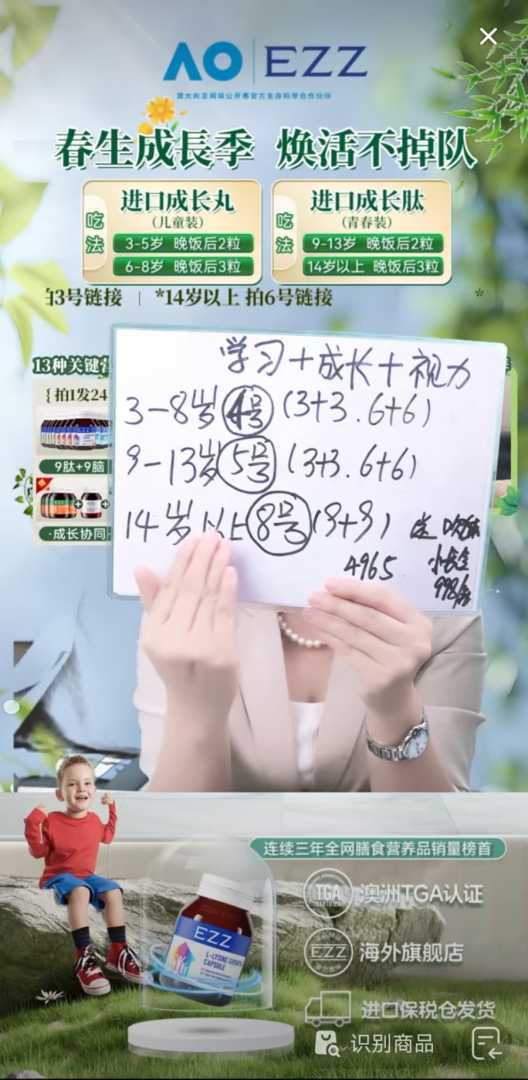 AO EZZ
澳大利亚网球公开赛官方生命科学合作伙伴
春生成長季 焕活不掉队
进口成长丸
(儿童装)
吃法
3-5岁 晚饭后2粒
6-8岁 晚饭后3粒
进口成长肽
(青春装)
吃法
9-13岁 晚饭后2粒
14岁以上 晚饭后3粒
拍3号链接 | *14岁以上 拍6号链接 *
13种关键营
{拍1发24
9肽+9脑
·成长协同
学习+成长+视力
3-8岁 4号 (3+3.6+6)
9-13岁 5号 (3+3.6+6)
14岁以上 8号 (9+9)
4965
连续三年全网膳食营养品销量榜首
EZZ
L-LYSINE GROWTH
CAPSULE
TGA 澳洲TGA认证
EZZ 海外旗舰店
进口保税仓发货
识别商品